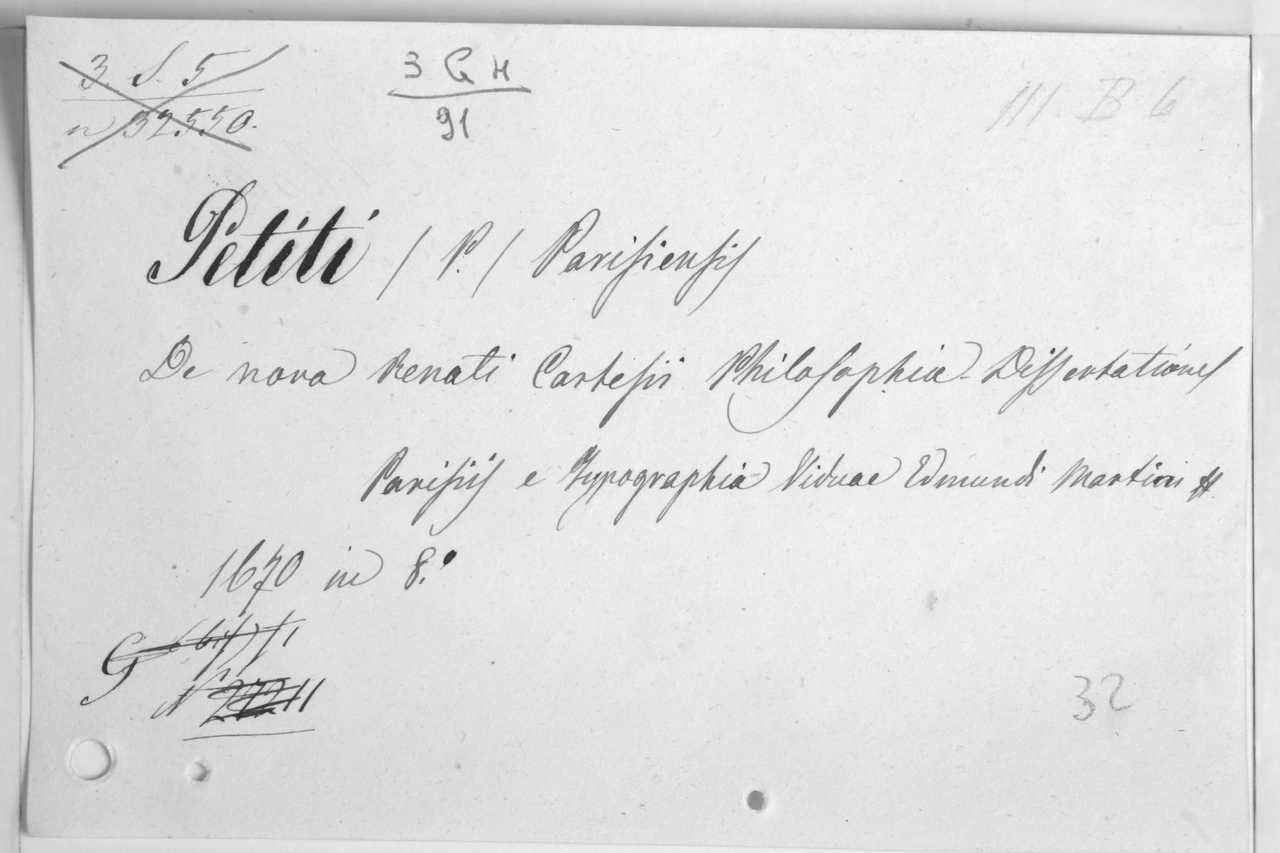 3. S. 5
n 32550.
3 G H
91
III B 6
Petiti / P. / Parisiensis
De nova Renati Cartesii Philosophia Dissertationes
Parisiis e Typographia Viduae Edmundi Martini
1670 in 8.º
G
N
32